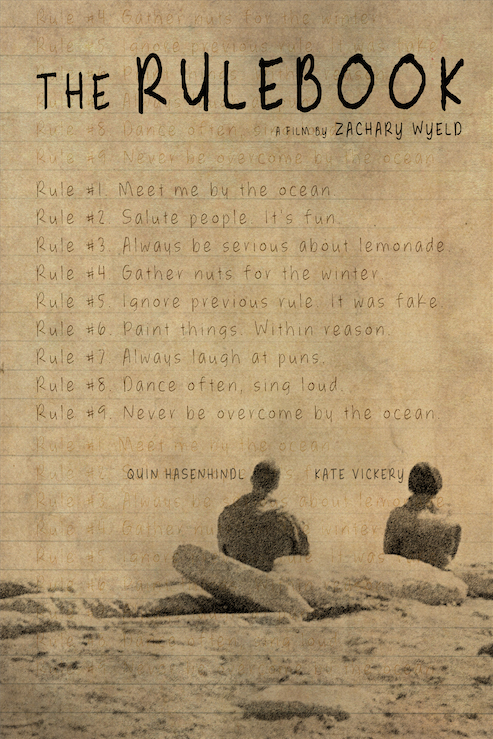 Rule #4. Gather nuts for the winter.
Rule #5. Ignore previous rule. It was fake.
THE RULEBOOK
A FILM BY ZACHARY WYELD
Rule #8. Dance often, sing loud.
Rule #9. Never be overcome by the ocean.
Rule #1. Meet me by the ocean.
Rule #2. Salute people. It's fun.
Rule #3. Always be serious about lemonade.
Rule #4. Gather nuts for the winter.
Rule #5. Ignore previous rule. It was fake.
Rule #6. Paint things. Within reason.
Rule #7. Always laugh at puns.
Rule #8. Dance often, sing loud.
Rule #9. Never be overcome by the ocean.
Rule #1. Meet me by the ocean.
QUIN HASENHINDL KATE VICKERY